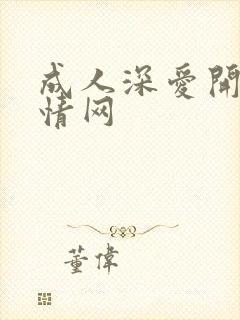 成人深爱開
情网
董偉